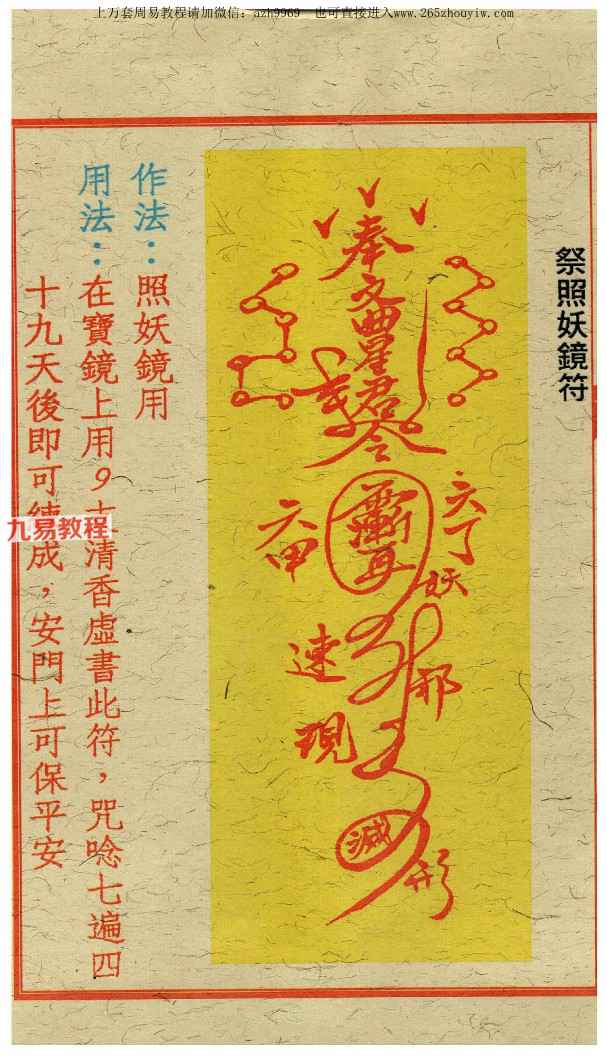 上万套周易教程请加微信：azh9969 也可直接进入www.265zhouyiw.com
祭照妖鏡符
奉
文曲星君令
六丁
六甲
妖
邪
速
現
形
滅
作法：照妖鏡用
用法：在寶鏡上用9 清香虛書此符，咒唸七遍四
十九天後即可 成，安門上可保平安
九易教程